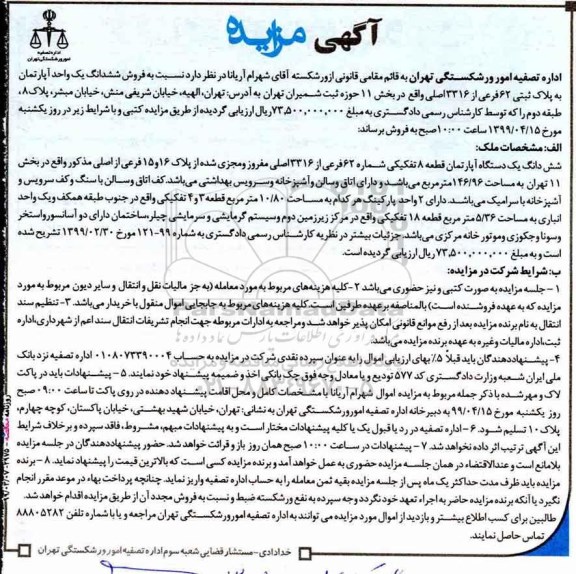 آگهی مزایده
اداره تصفیه
امور ورشکستگی تهران
اداره تصفیه امور ورشکستگی تهران به قائم مقامی قانونی از ورشکسته آقای شهرام آریانا در نظر دارد نسبت به فروش ششدانگ یک واحد آپارتمان
به پلاک ثبتی ۶۲ فرعی از ۳۳۱۶ اصلی واقع در بخش ۱۱ حوزه ثبت شمیران تهران به آدرس: تهران، الهیه، خیابان شریفی منش، خیابان مبشر، پلاک ۸،
طبقه دوم را که توسط کارشناس رسمی دادگستری به مبلغ ۷۳,۵۰۰,۰۰۰,۰۰۰ ریال ارزیابی گردیده از طریق مزایده کتبی و با شرایط زیر در روز یکشنبه
مورخ ۱۳۹۹/۰۴/۱۵ ساعت ۱۰:۰۰ صبح به فروش برساند:
الف: مشخصات ملک:
شش دانگ یک دستگاه آپارتمان قطعه ۸ تفکیکی شماره ۶۲ فرعی از ۳۳۱۶ اصلی مفروز و مجزی شده از پلاک ۱۶ و ۱۵ فرعی از اصلی مذکور واقع در بخش
۱۱ تهران به مساحت ۱۴۶/۹۶ متر مربع می باشد. و دارای اتاق وسالن و آشپزخانه و سرویس بهداشتی می باشد. کف اتاق وسالن با سنگ و کف سرویس و
آشپزخانه با سرامیک می باشد. دارای ۲ واحد پارکینگ هر کدام به مساحت ۱۰/۸۰ متر مربع قطعه ۳ و ۴ تفکیکی واقع در جنوب طبقه همکف و یک واحد
انباری به مساحت ۵/۳۶ متر مربع قطعه ۱۸ تفکیکی واقع در مرکز زیرزمین دوم وسیستم گرمایشی و سرمایشی چیلر، ساختمان دارای دو آسانسور واستخر
وسونا و جکوزی و موتور خانه مرکزی می باشد. جزئیات بیشتر در نظریه کارشناس رسمی دادگستری به شماره ۹۹-۱۲۱ مورخ ۱۳۹۹/۰۲/۳۰ تشریح شده
و به مبلغ ۷۳,۵۰۰,۰۰۰,۰۰۰ ریال ارزیابی گردیده است.
ب: شرایط شرکت در مزایده:
۱ - جلسه مزایده به صورت کتبی و نیز حضوری می باشد ۲- کلیه هزینه های مربوط به مورد معامله (به جز مالیات نقل و انتقال و سایر دیون مربوط به مورد
مزایده که به عهده فروشنده است) بالمناصفه بر عهده طرفین است. کلیه هزینه های مربوط به جابجایی اموال منقول با خریدار می باشد. ۳- تنظیم سند
انتقال به نام برنده مزایده بعد از رفع موانع قانونی امکان پذیر خواهد شد و مراجعه به ادارات مربوطه جهت انجام تشریفات انتقال سند اعم از شهرداری، اداره
ثبت، اداره مالیات وغیره به عهده برنده مزایده می باشد.
۴- پیشنهاددهندگان باید قبلا ۵٪ بهای ارزیابی اموال را به عنوان سپرده نقدی شرکت در مزایده به حساب ۰۱۰۸۰۷۳۳۹۰۰۰۴ اداره تصفیه نزد بانک
ملی ایران شعبه وزارت دادگستری کد ۵۷۷ تودیع و یا معادل وجه فوق چک بانکی اخذ و ضمیمه پیشنهاد خود نمایند. ۵ - پیشنهادات باید در پاکت
لاک و مهر شده با ذکر جمله مربوط به مزایده اموال شهرام آریانا با مشخصات کامل و محل اقامت پیشنهاد دهنده در روی پاکت تا ساعت ۰۹:۰۰ صبح
روز یکشنبه مورخ ۹۹/۰۴/۱۵ به دبیرخانه اداره تصفیه امور ورشکستگی تهران به نشانی: تهران، خیابان شهید بهشتی، خیابان پاکستان، کوچه چهارم،
پلاک ۱۰ تسلیم شود. ۶ - اداره تصفیه در رد یا قبول یک یا کلیه پیشنهادات مختار است و به پیشنهادات مبهم، مشروط، فاقد سپرده و بر خلاف شرایط
این آگهی ترتیب اثر داده نخواهد شد. ۷ - پیشنهادات در ساعت ۱۰:۰۰ صبح همان روز باز و قرائت خواهد شد. حضور پیشنهاددهندگان در جلسه مزایده
بلامانع است و عندالاقتضاء در همان جلسه مزایده حضوری به عمل خواهد آمد و برنده مزایده کسی است که بالاترین قیمت را پیشنهاد نماید. ۸ - برنده
مزایده باید ظرف مدت حداکثر یک ماه پس از جلسه مزایده بقیه ثمن معامله را به حساب اداره تصفیه واریز نماید. چنانچه پرداخت بهاء در موعد مقرر انجام
نگیرد یا آنکه برنده مزایده حاضر به اجراء تعهد خود نگردد وجه سپرده به نفع ورشکسته ضبط و نسبت به فروش مجدد آن از طریق مزایده اقدام خواهد شد.
طالبین برای کسب اطلاع بیشتر و بازدید از اموال مورد مزایده می توانند به اداره تصفیه امور ورشکستگی تهران مراجعه و یا با شماره تلفن ۸۸۸۰۵۲۸۲
تماس حاصل نمایند.
خدادادی - مستشار قضایی شعبه سوم اداره تصفیه امور ورشکستگی تهران